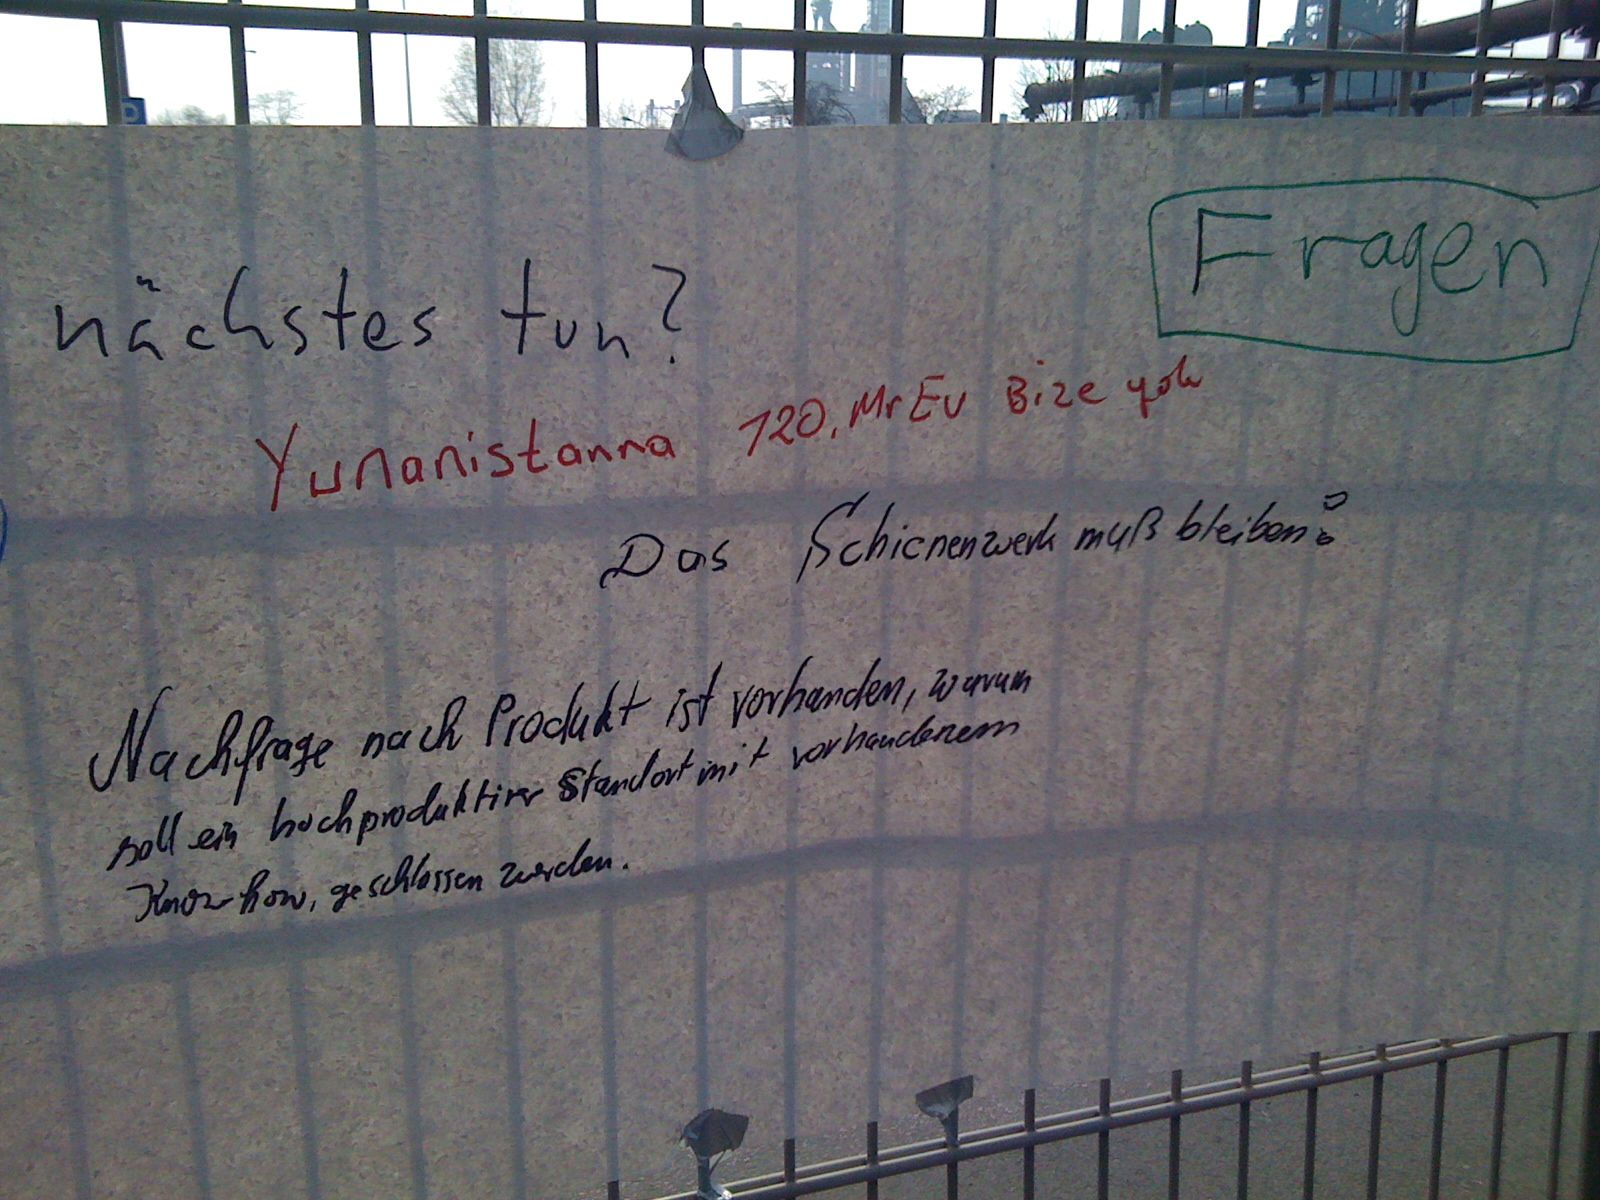 Fragen
nächstes tun?
Yunanistanna 120.MrEu Bize yok
Das Schienenwerk muß bleiben!
Nachfrage nach Produkt ist vorhanden, warum
soll ein hochproduktiver Standort mit vorhandenem
Know-how, geschlossen werden.